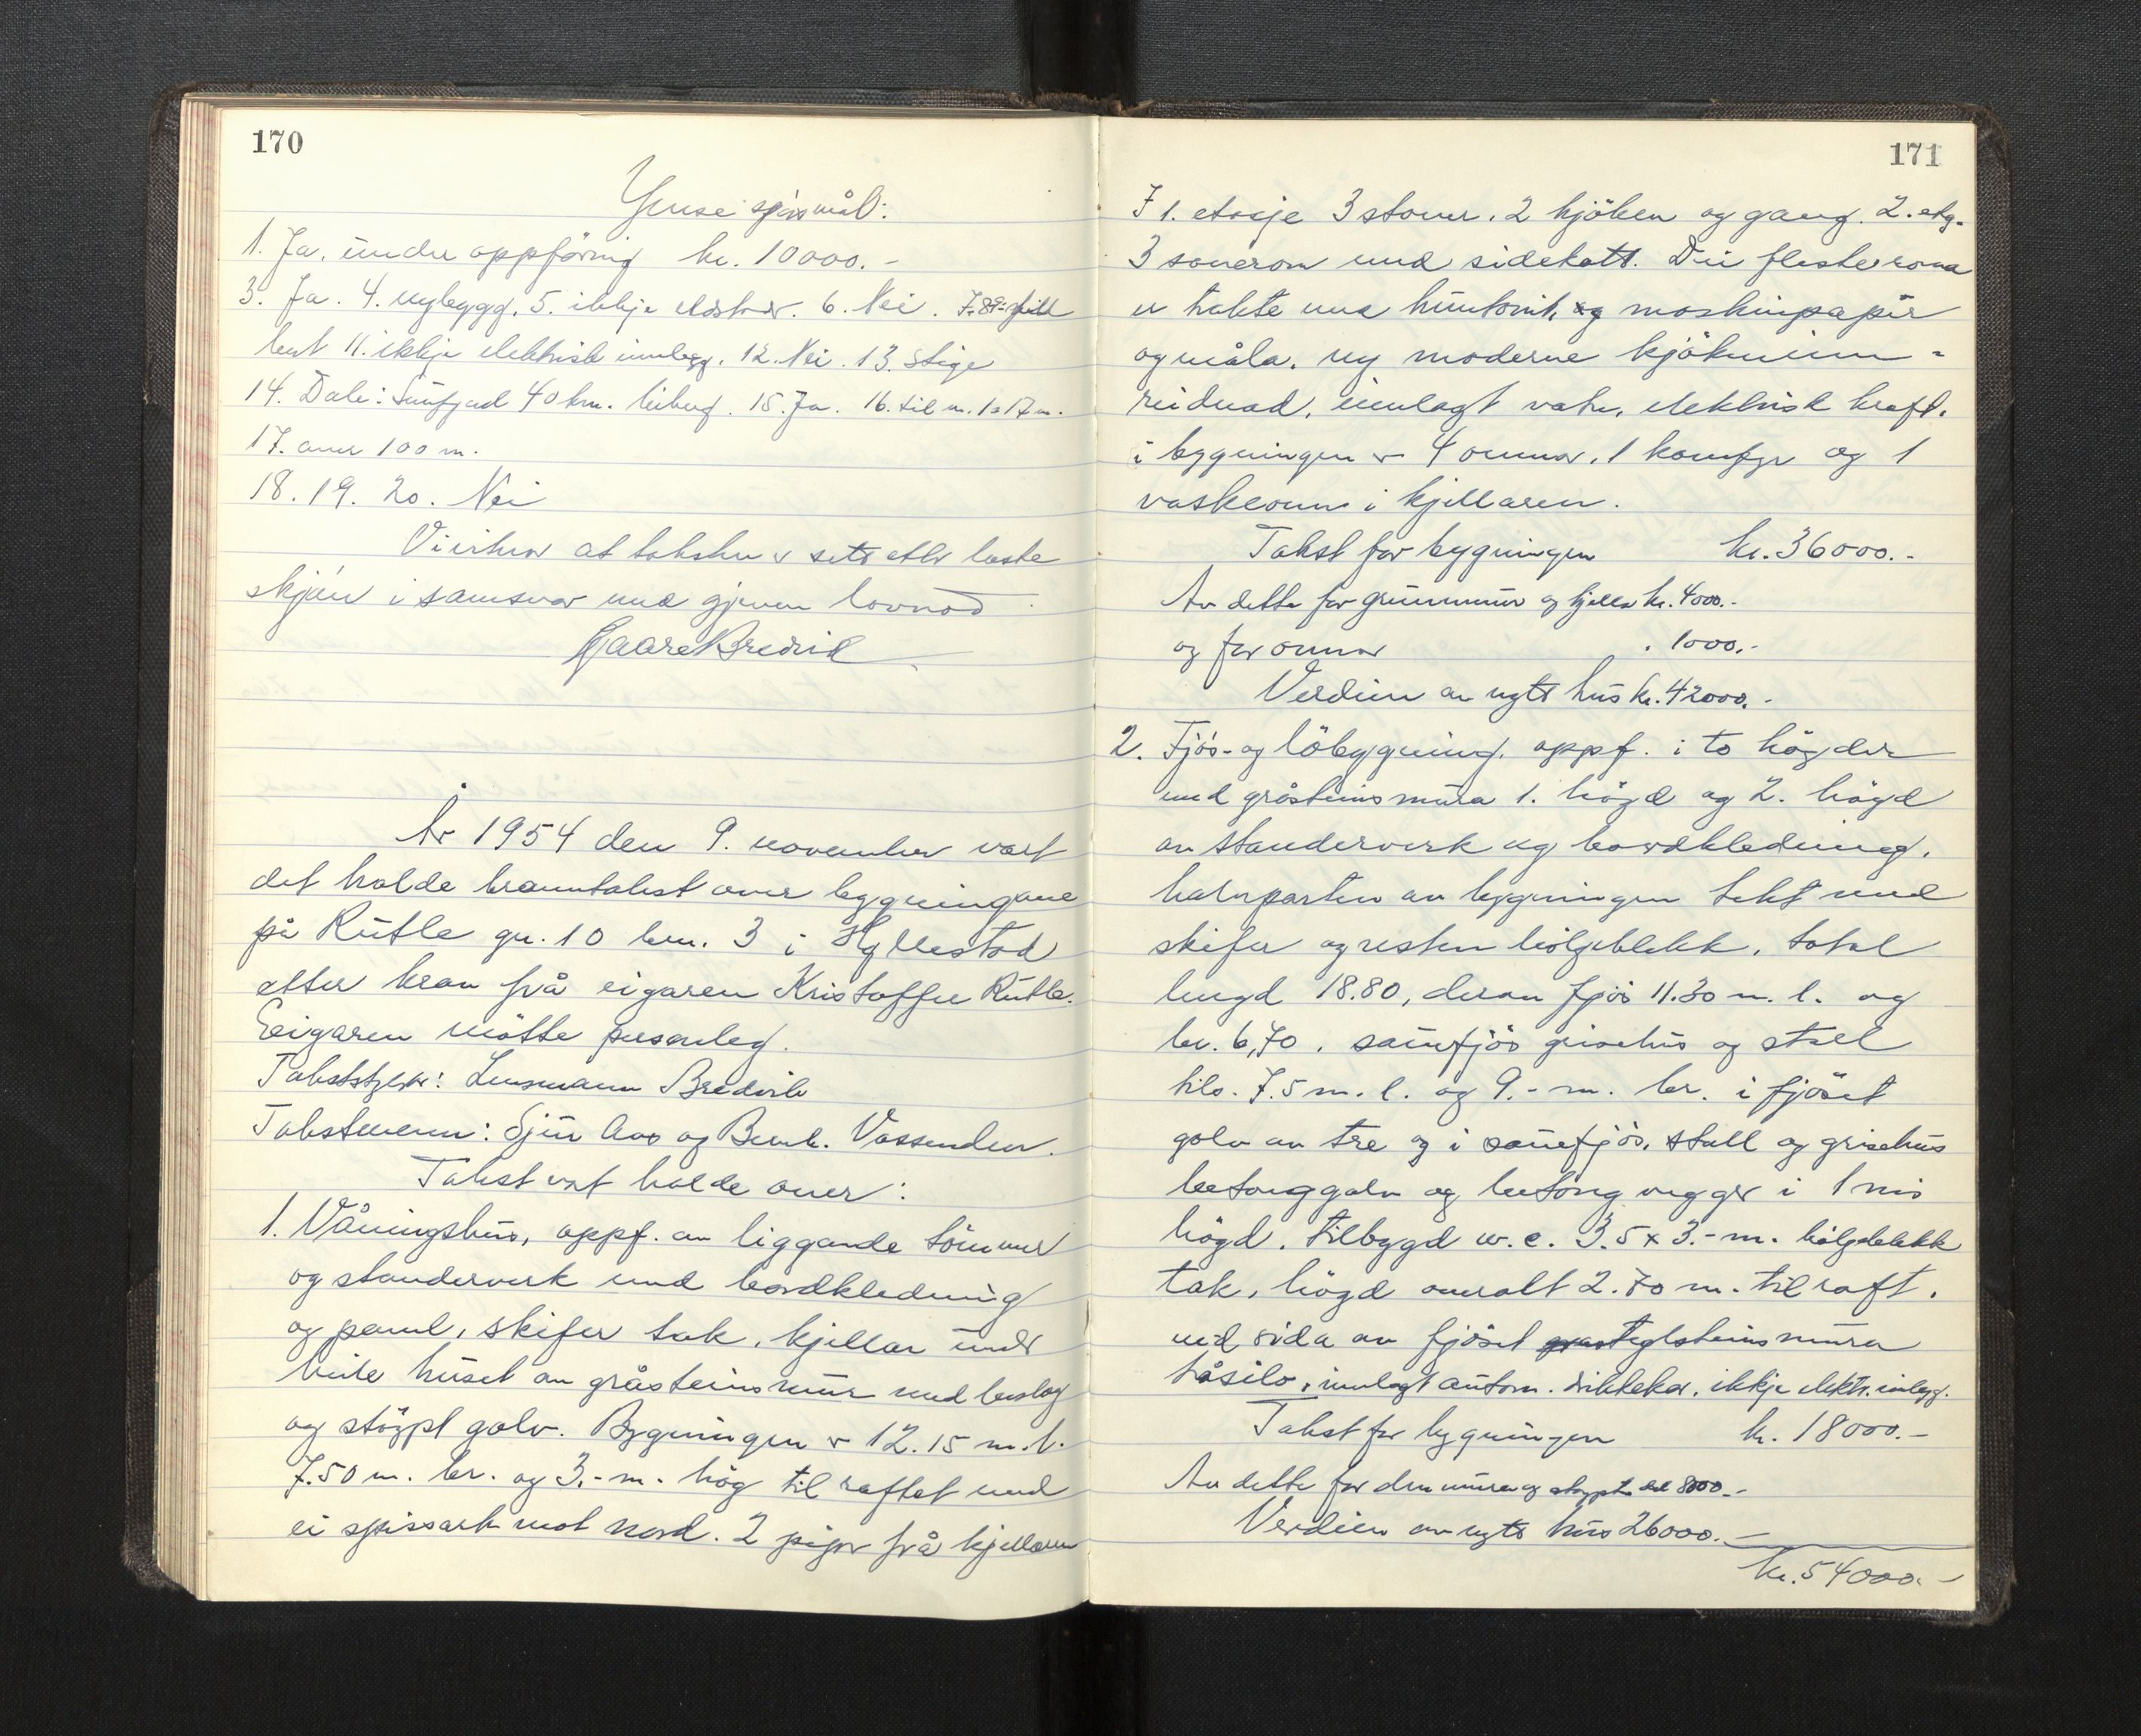 170
Ymse spørsmål:
1. Ja, under oppföring kr. 10000.-
3. Ja. 4. nybygg. 5. ikkje eldstader. 6. Nei.
11. ikkje elektrisk innlegg. 12. Nei. 13. Stige
14. Dale i Sunnfjord 40 km. 15. Ja. 16. til nr. 1 a 17 m.
17. over 100 m.
18. 19. 20. Nei
Vi vitnar at taksten er sett etter beste
skjön i samsvar med gjeven lovnad
Kaare Bredvik
År 1954 den 9. november vart
det halde branntakst over bygningane
på Rutle gn. 10 brn. 3 i Hyllestad
etter krav frå eigaren Kristoffer Rutle.
Eigaren mötte personleg.
Takststyrar: Lensmann Bredvik
Takstmenn: Sjur Aas og Bernh. Vassenden.
Takst vart halde over:
1. Våningshus, oppf. av liggande tömmer
og standerverk med bordkledning
og panel, skifer tak, kjellar under
heile huset av gråsteinsmur med beslag
og stöypt golv. Bygningen er 12.15 m. l.
7.50 m. br. og 3.- m. hög til raftet med
ei spissark mot nord. 2 piper frå kjellaren
171
I 1. etasje 3 stover, 2 kjöken og gang. 2. etg.
3 soverom med sidekott. Dei fleste romma
er trekte med huntonit, og maskinpapir
og måla. ny moderne kjökeninn-
reidnad, innlagt vatn, elektrisk kraft.
i bygningen er 4 omnar, 1 komfyr og 1
vaskeomn i kjellaren.
Takst for bygningen kr. 36000.-
Av dette for grunnmur og kjellar kr. 4000.-
og for omnar " 1000.-
Verdien av nytt hus kr. 42000.-
2. Fjös- og löbygning. oppf. i to högder
med gråsteinsmura 1. högd og 2. högd
av standerverk og bordkledning.
halvparten av bygningen tekt med
skifer og resten bölgeblekk. total
lengd 18.80, derav fjös 11.30 m. l. og
br. 6,70. sauefjös grisehus og stall
tils. 7.5 m. l. og 9.- m. br. i fjöset
golv av tre og i sauefjös, stall og grisehus
betonggolv og betong vegger i 1 mrs
högd. Tilbygd w.c. 3.5 x 3.- m. bölgeblekk
tak, högd overalt 2.70 m. til raft.
ved sida av fjöset teglsteinsmura
håsilo, innlagt autom. drikkekar, ikkje elektr. innlegg.
Takst for bygningen kr. 18000.-
Av dette for den mura og støypte del 8000.-
Verdien av nytt hus 26000.-
kr. 54000.-